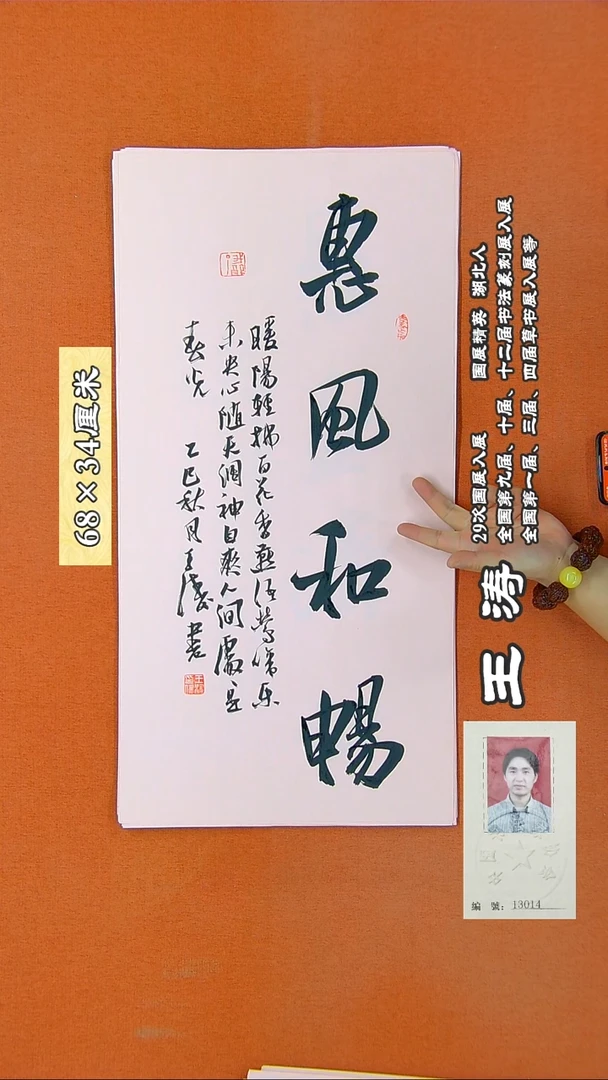 惠風和暢
暖陽輕拂百花香燕語鶯啼樂
未央心隨天闊神自爽人間處〻是
春光 乙巳秋月王濤書
68×34厘米
王涛
29次国展入展 国展精英 湖北人
全国第九届、十届、十二届书法篆刻展入展
全国第一届、三届、四届草书展入展等
編 號：13014